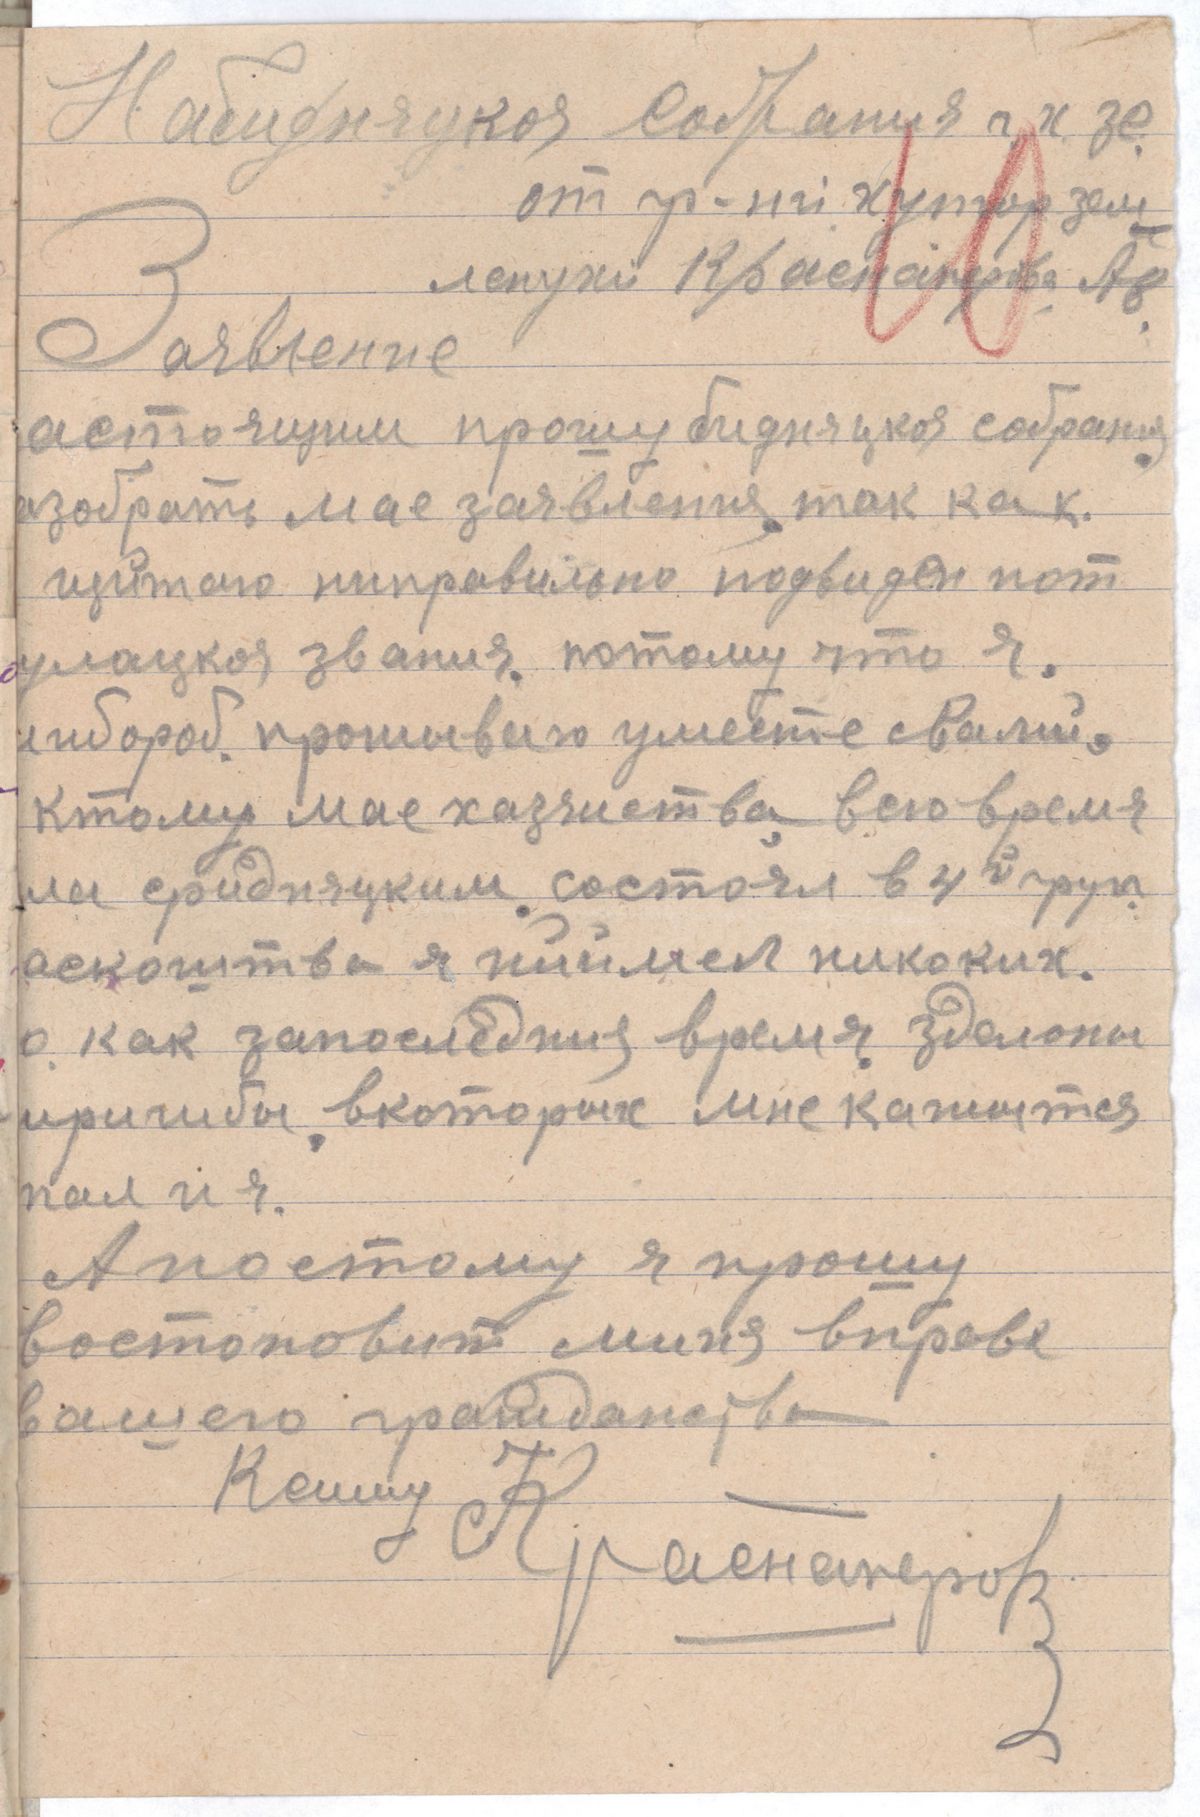 Набидняцкоя собрания г. х. зе.
от гр-ні хутор зем
лепухи Краснапёрова А. Ф.
Заявление
астоящим прошу бидняцкоя собрания
азобрать мае заявления, так как.
щитаю ниправильно подвиден пот
улацкоя звания. потому что я.
либороб. прошываю уместе сВами.
ктому мае хазяиства всю время
ла сридняцким. состоял в 4й груп.
аскоптва я ниимел никоких.
о. как запоследния время. зделоны
иригибы, вкоторых мне кажытся
пал и я.
А поетому я прошу
востоновит миня вправе
вашего гражданства
К симу Краснаперов